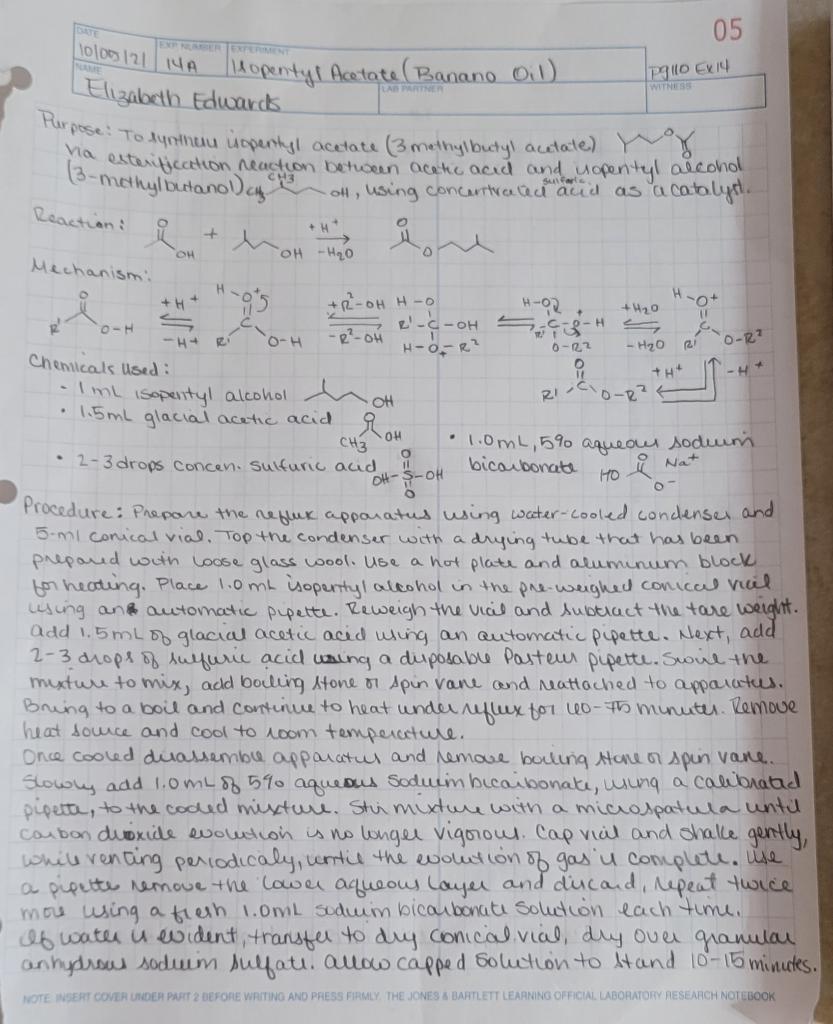 05
DATE
10/05/21
EXP. NUMBER
14A
EXPERIMENT
Isopentyl Acetate (Banana Oil)
pg110 Ex14
NAME
Elizabeth Edwards
LAB PARTNER
WITNESS
Purpose: To synthesis isopentyl acetate (3 methylbutyl acetate)
via esterification reaction between acetic acid and isopentyl alcohol
(3-methylbutanol) CH3 CH3 OH, using concentrated sulfuric acid as a catalyst.
Reaction: O OH + OH +H+ -H2O O O
Mechanism:
R1 O O-H +H+ -H+ H-O+ C R1 O-H +R2-OH -R2-OH H-O R1-C-OH H-O+-R2 H-O R1-C-O-H O-R2 +H2O -H2O H-O+ C R1 O-R2
Chemicals Used:
+H+ -H+
O R1-C O-R2
- 1mL isopentyl alcohol OH
• 1.5mL glacial acetic acid O CH3 OH
• 1.0mL, 5% aqueous sodium
bicarbonate HO O O- Na+
• 2-3 drops concen. sulfuric acid O OH-S-OH O
Procedure: Prepare the reflux apparatus using water-cooled condenser and
5-ml conical vial. Top the condenser with a drying tube that has been
prepared with loose glass wool. Use a hot plate and aluminum block
for heating. Place 1.0mL isopentyl alcohol in the pre-weighed conical vial
using an automatic pipette. Reweigh the vial and subtract the tare weight.
add 1.5mL of glacial acetic acid using an automatic pipette. Next, add
2-3 drops of sulfuric acid using a disposable Pasteur pipette. Swirl the
mixture to mix, add boiling stone or spin vane and reattached to apparatus.
Bring to a boil and continue to heat under reflux for 60-75 minutes. Remove
heat source and cool to room temperature.
Once cooled disassemble apparatus and remove boiling stone or spin vane.
Slowly add 1.0mL of 5% aqueous sodium bicarbonate, using a calibrated
pipette, to the cooled mixture. Stir mixture with a microspatula until
carbon dioxide evolution is no longer vigorous. Cap vial and shake gently,
while venting periodicaly, until the evolution of gas is complete. Use
a pipette remove the lower aqueous layer and discard, repeat twice
more using a fresh 1.0mL sodium bicarbonate solution each time.
If water is evident, transfer to dry conical vial, dry over granular
anhydrous sodium sulfate. allow capped solution to stand 10-15 minutes.
NOTE: INSERT COVER UNDER PART 2 BEFORE WRITING AND PRESS FIRMLY. THE JONES & BARTLETT LEARNING OFFICIAL LABORATORY RESEARCH NOTEBOOK